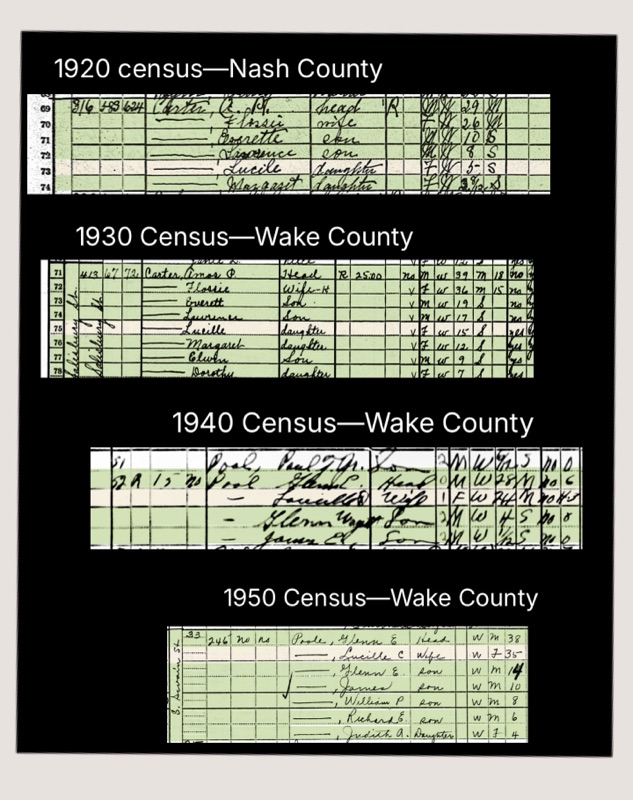 1920 census—Nash County
69 816 483 624 Carter, A. P. head R M W 29 M
70 —, Flossie wife F W 26 M
71 —, Everette son M W 10 S
72 —, Lawrence son M W 8 S
73 —, Lucile daughter F W 5 S
74 —, Margaret daughter F W S
1930 Census—Wake County
Salisbury St.
71 413 67 72 Carter, Amos P. Head R 25.00 no M W 39 M 18 no
72 — Flossie Wife-H V F W 36 M 15 no
73 — Everett Son V M W 19 S no
74 — Lawrence Son V M W 17 S no
75 — Lucille daughter V F W 15 S yes
76 — Margaret daughter V F W 12 S yes
77 — Elwin Son V M W 9 S yes
78 — Dorothy daughter V F W 7 S yes
1940 Census—Wake County
51 Pool, Paul J. Jr. Son 2 M W S no 0
52 R 15 no Pool Glenn E. Head 0 M W 28 M no 6
— Lucille Wife 1 F W 24 M no
— Glenn Son 2 M W 4 S no 0
— James E. Son 2 M W S no 0
1950 Census—Wake County
S. Swain St.
33 246 no no Poole, Glenn E Head W M 38
—, Lucille C Wife W F 35
—, Glenn E. son W M 14
—, James son W M 10
—, William P son W M 8
—, Richard E. son W M 6
—, Judith A. Daughter W F 4